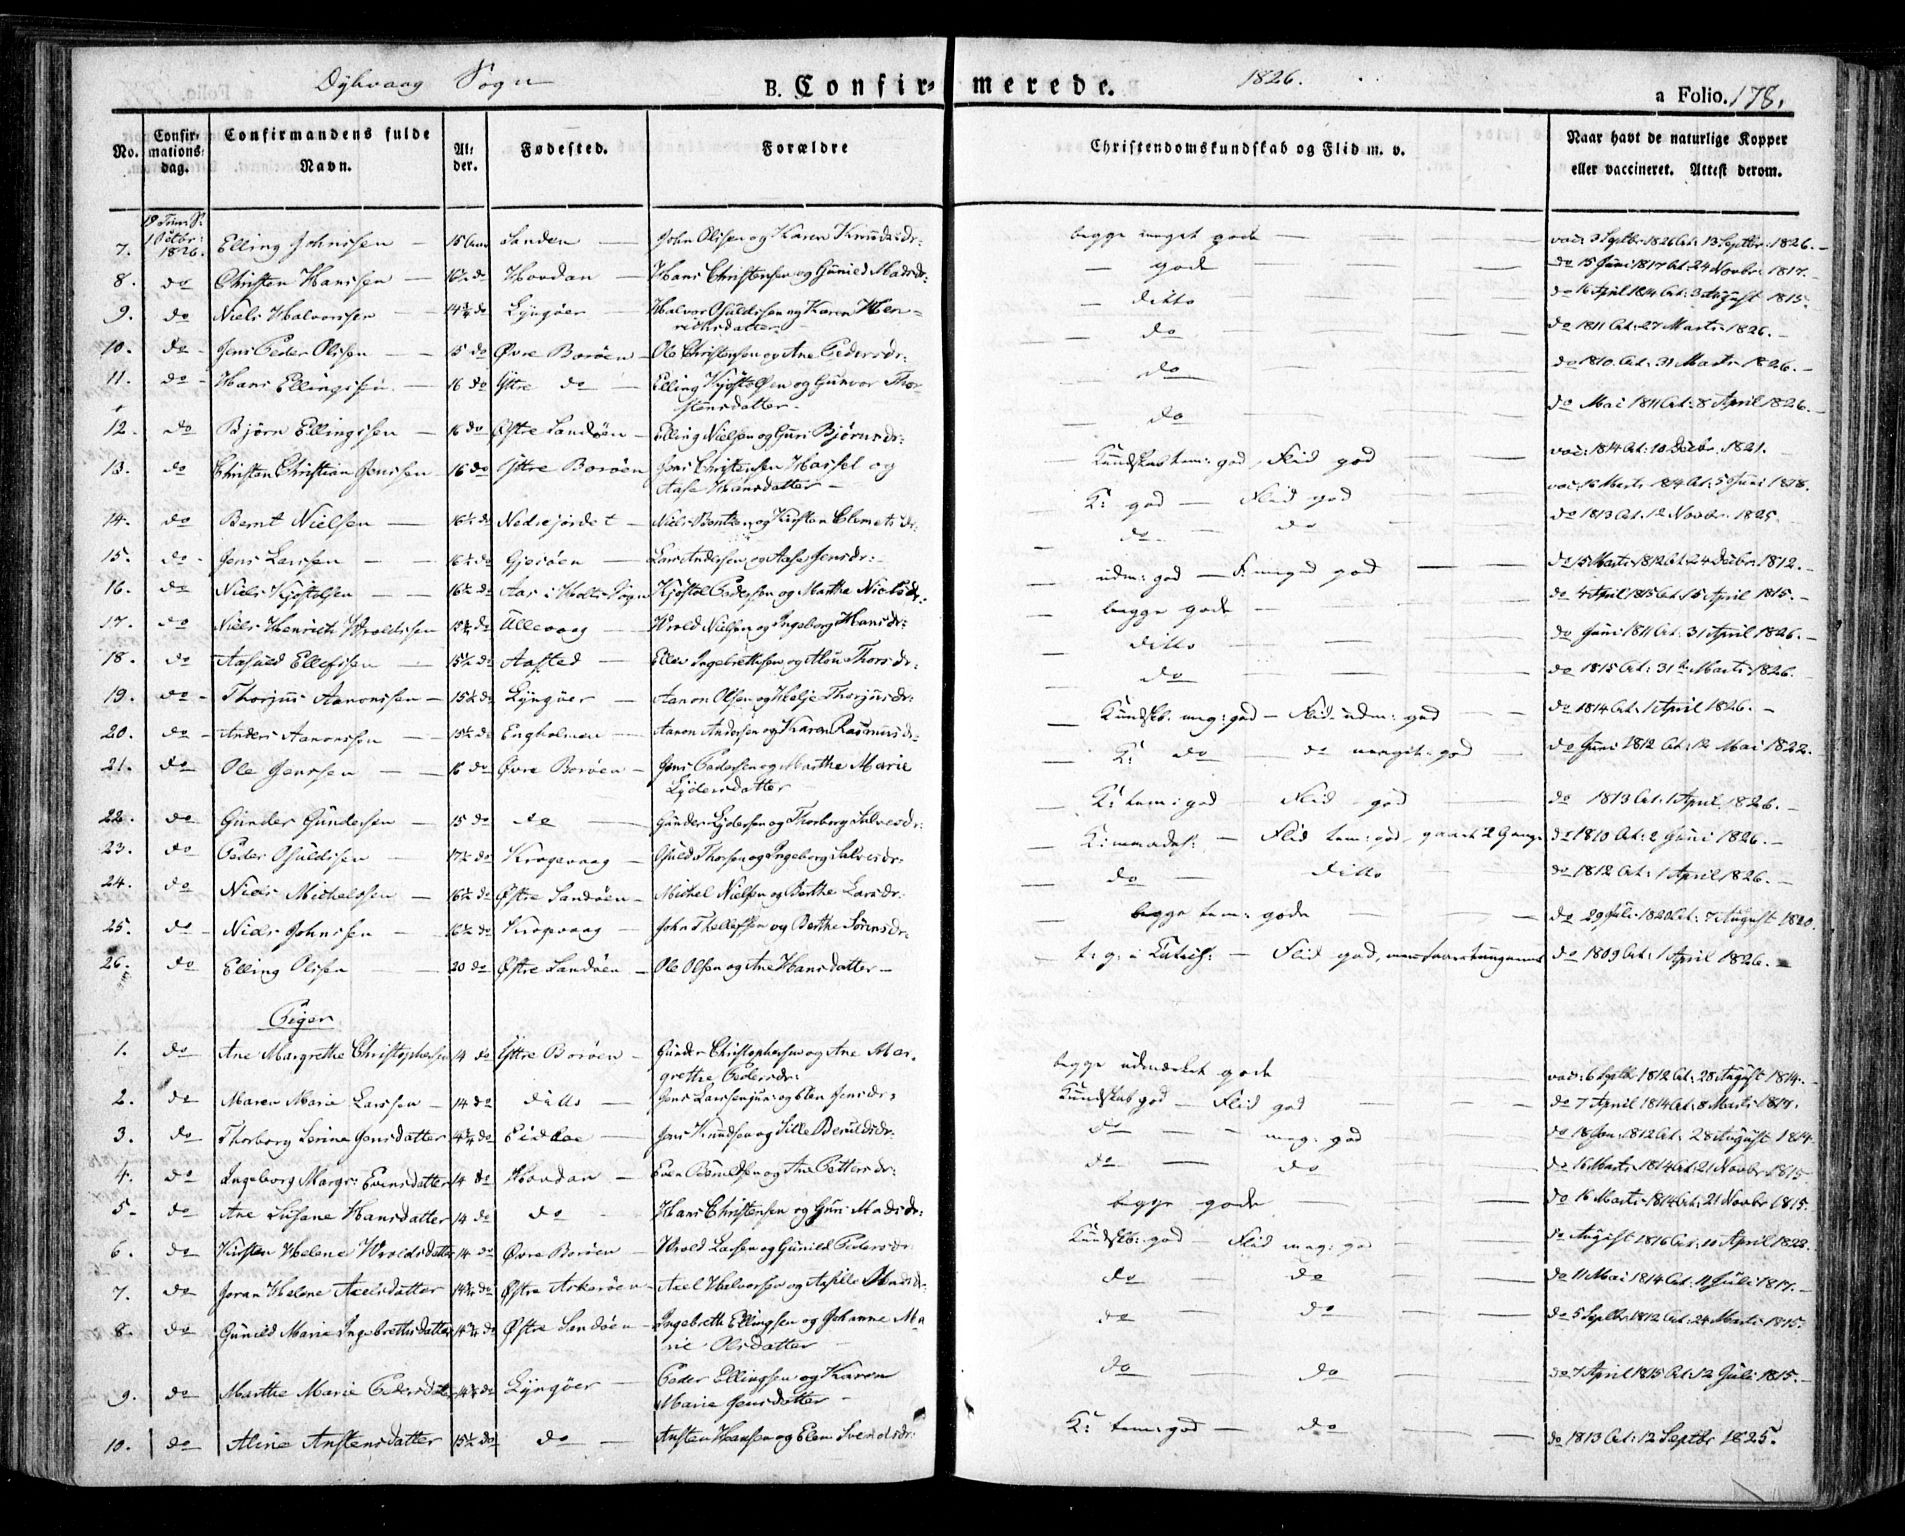 Dyhvaag Sogn B. Confirmerede. 1826. a Folio. 178.
No. Confirmationsdag. Confirmandens fulde Navn. Alder. Fødested. Forældre Christendomskundskab og Flid m. v. Naar havt de naturlige Kopper eller vaccineret. Attest derom.
7. 1826. Elling Johnssen 15 Sanden John Olssen og Karen Knudsdr: begge meget gode vac: 3 Septbr 1826 At: 13 Septbr. 1826.
8. do Christen Hanssen 16½ do Hovdan Hans Christensen og Gunild Madsdr: gode do 15 Juni 1817 At: 24 Novbr. 1817.
9. do Niels Halvorssen 14¾ do Lyngøer Halvor Osuldssen og Karen Hen-
richsdatter ditto do 16 April 1814 At: 3 August 1815.
10. do Jens Peder Olssen 15 do Øvre Borøen Ole Christensen og Ane Pedersdr: do do 1811 At: 27 Marts 1826.
11. do Hans Ellingssen 16 do Yttre do Elling Kjøstolsen og Gunvor Thor-
stensdatter do do 1810 At: 31 Marts 1826.
12. do Bjørn Ellingssen 16 do Østre Sandøen Elling Nielsen og Guri Bjørnsdr: do do Mai 1811 At: 8 April 1826.
13. do Christen Christian Jenssen 16 do Yttre Borøen Jens Christensen Hassel og
Aase Hansdatter Kundskab tem: god, Flid god vac: 1814 At: 10 Decbr. 1821.
14. do Bernt Nielsen 16½ do Nedrejordet Niels Bentsen og Kirsten Clemetsdr. K: god Flid god vac: 16 Marts 1814 At: 5 Juni 1818.
15. do Jens Larssen 16½ do Gjerøen Lars Andersen og Aase Jensdr: do do do 1813 At: 12 Novbr. 1825.
16. do Niels Kjøstolsen 16½ do Aas i Holts Sogn Kjøstol Pedersen og Martha Nielsdr: udm: god F: meget god do 15 Marts 1812 At: 24 Decbr. 1812.
17. do Niels Henrich Wroldssen 15¾ do Ullevaag Wrold Nielsen og Ingeborg Hansdr: begge gode do 4 April 1815 At: 15 April 1815.
18. do Aasuld Ellefssen 15½ do Aasted Ellev Ingebrethsen og Alou Thorsdr: ditto do Juni 1811 At: 31 April 1826.
19. do Thorjus Aanonssen 15½ do Lyngøer Aanon Olsen og Helje Thorjusdr: do do 1815 At: 31te Marts 1826.
20. do Anders Aanonssen 15½ do Engholmen Aanon Andersen og Karen Rasmusdr: Kundsk. meg: god Flid udm: god do 1814 At: 1 April 1826.
21. do Ole Jenssen 16 do Øvre Borøen Jens Pedersen og Marthe Marie
Lydersdatter K: do do meget: god do Juni 1812 At: 12 Mai 1822.
22. do Gunder Gundersen 15 do do Gunder Lydersen og Thorborg Salvesdr: K: tem: god Flid god do 1813 At: 1 April 1826.
23. do Peder Osuldssen 17½ do Krogevaag Osuld Thorsen og Ingeborg Salvesdr: K: maadel: Flid tem: god, do 1810 At: 2 Juni 1826.
24. do Niels Michelssen 16½ do Østre Sandøen Michel Nielsen og Berthe Larsdr: do ditto do 1812 At: 1 April 1826.
25. do Niels Johnssen 16½ do Krogvaag John Thellefsen og Berthe Sørensdr: begge tem: gode do 29 Juli 1820 At: 7 August 1820.
26. do Elling Olssen 20 do Østre Sandøen Ole Olsen og Ane Hansdatter t: g: Flid god, do 1809 At: 1 April 1826.
Piger
1. do Ane Margrethe Christophersen 14 do Yttre Borøen Gunder Christophersen og Ane Mar-
grethe Pedersdr: begge udmærket gode vac: 6 Septbr 1812 At: 28 August 1814.
2. do Maren Maria Larssen 14 do ditto Jens Larssen jun: og Elen Jensdr: Kundskab god Flid god do 7 April 1814 At: 8 Marts 1817.
3. do Thorborg Serine Jensdatter 14¾ do Eidboe Jens Knudsen og Sille Beruldsdr: do meg: god do 18 Jan: 1812 At: 28 August 1814.
4. do Ingeborg Margr: Evensdatter 14 do Hovdan Even Beruldsen og Ane Pettersdr: do do do 16 Marts 1814 At: 21 Novbr 1815.
5. do Ane Susane Hansdatter 14 do do Hans Christensen og Guri Madsdr: begge gode do 16 Marts 1814 At: 21 Novbr 1815.
6. do Kirsten Helene Wroldsdatter 14 do Øvre Borøen Wrold Larsen og Gunild Pedersdr: Kundsk: god Flid meg: god do August 1816 At: 10 April 1822.
7. do Joran Helene Axelsdatter 14¾ do Østre Askerøen Axel Halvorsen og Assille do do do 11 Mai 1814 At: 11 Juli 1817.
8. do Gunild Maria Ingebrethsdatter 14¾ do Østre Sandøen Ingebreth Ellingsen og Johanne Ma-
rie Olsdatter do do do 5 Septbr. 1812 At: 24 Marts 1815.
9. do Marthe Marie Pedersdatter 14¾ do Lyngøer Peder Ellingsen og Karen
Marie Jensdatter do do do 7 April 1815 At: 12 Juli 1815.
10. do Aline Anstensdatter 15½ do do Ansten Hansen og Elen Svendsdr: K: tem: god do do 1813 At: 12 Septbr 1825.